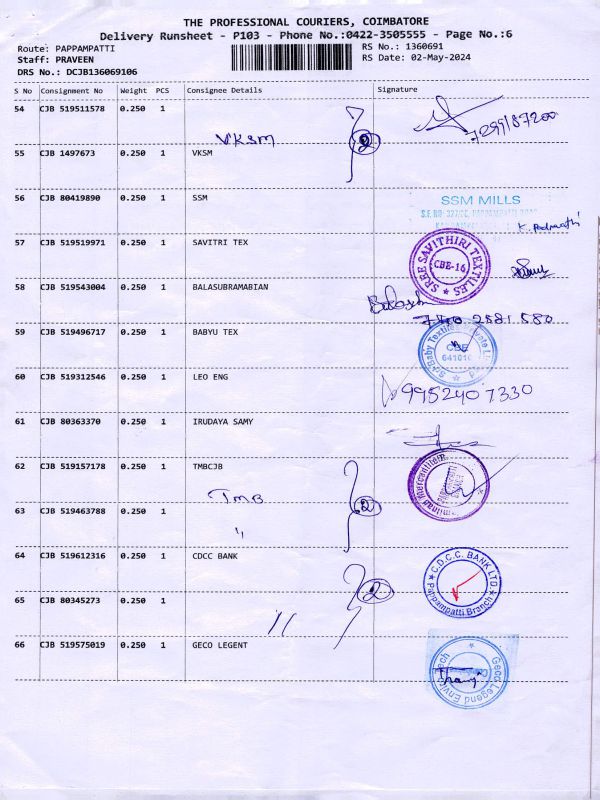 THE PROFESSIONAL COURIERS, COIMBATORE
Delivery Runsheet - P103 - Phone No.:0422-3505555 - Page No.:6
Route: PAPPAMPATTI
Staff: PRAVEEN
DRS No.: DCJB136069106
RS No.: 1360691
RS Date: 02-May-2024
S No Consignment No Weight PCS Consignee Details Signature
54 CJB 519511578 0.250 1
VKSM 2 7299187200
55 CJB 1497673 0.250 1 VKSM
56 CJB 80419890 0.250 1 SSM
SSM MILLS
57 CJB 519519971 0.250 1 SAVITRI TEX
SREE SAVITHIRI TEXTILES
CBE-16
58 CJB 519543004 0.250 1 BALASUBRAMABIAN
59 CJB 519496717 0.250 1 BABYU TEX
CBE
641016
60 CJB 519312546 0.250 1 LEO ENG
9952407330
61 CJB 80363370 0.250 1 IRUDAYA SAMY
62 CJB 519157178 0.250 1 TMBCJB
TMB 2
63 CJB 519463788 0.250 1
"
64 CJB 519612316 0.250 1 CDCC BANK
C.D.C.C. BANK LTD.
Pappampatti Branch
2
65 CJB 80345273 0.250 1
"
66 CJB 519575019 0.250 1 GECO LEGENT
Geco Legend Enviro Tech